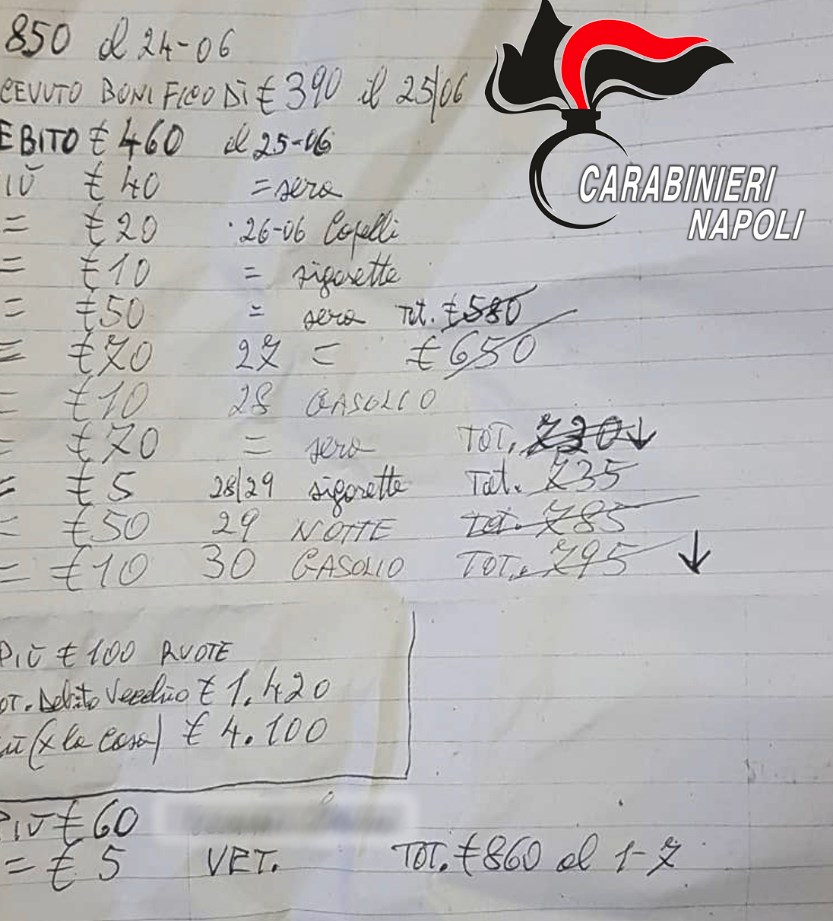 850 al 24-06
CEVUTO BONIFICO DI € 390 il 25/06
EBITO € 460 il 25-06
IÙ € 40 = sera
= € 20 26-06 Capelli
= € 10 = sigarette
= € 50 = sera Tot. € 580
= € 70 27 = € 650
= € 10 28 GASOLIO
= € 70 = sera TOT. 720 ↓
= € 5 28/29 sigarette Tot. 735
= € 50 29 NOTTE Tot. 785
= € 10 30 GASOLIO TOT. 795 ↓
PIÙ € 100 RUOTE
OT. Debito Vecchio € 1.420
iù (x la casa) € 4.100
PIÙ € 60
= € 5 VET. TOT. € 860 al 1-7
CARABINIERI
NAPOLI